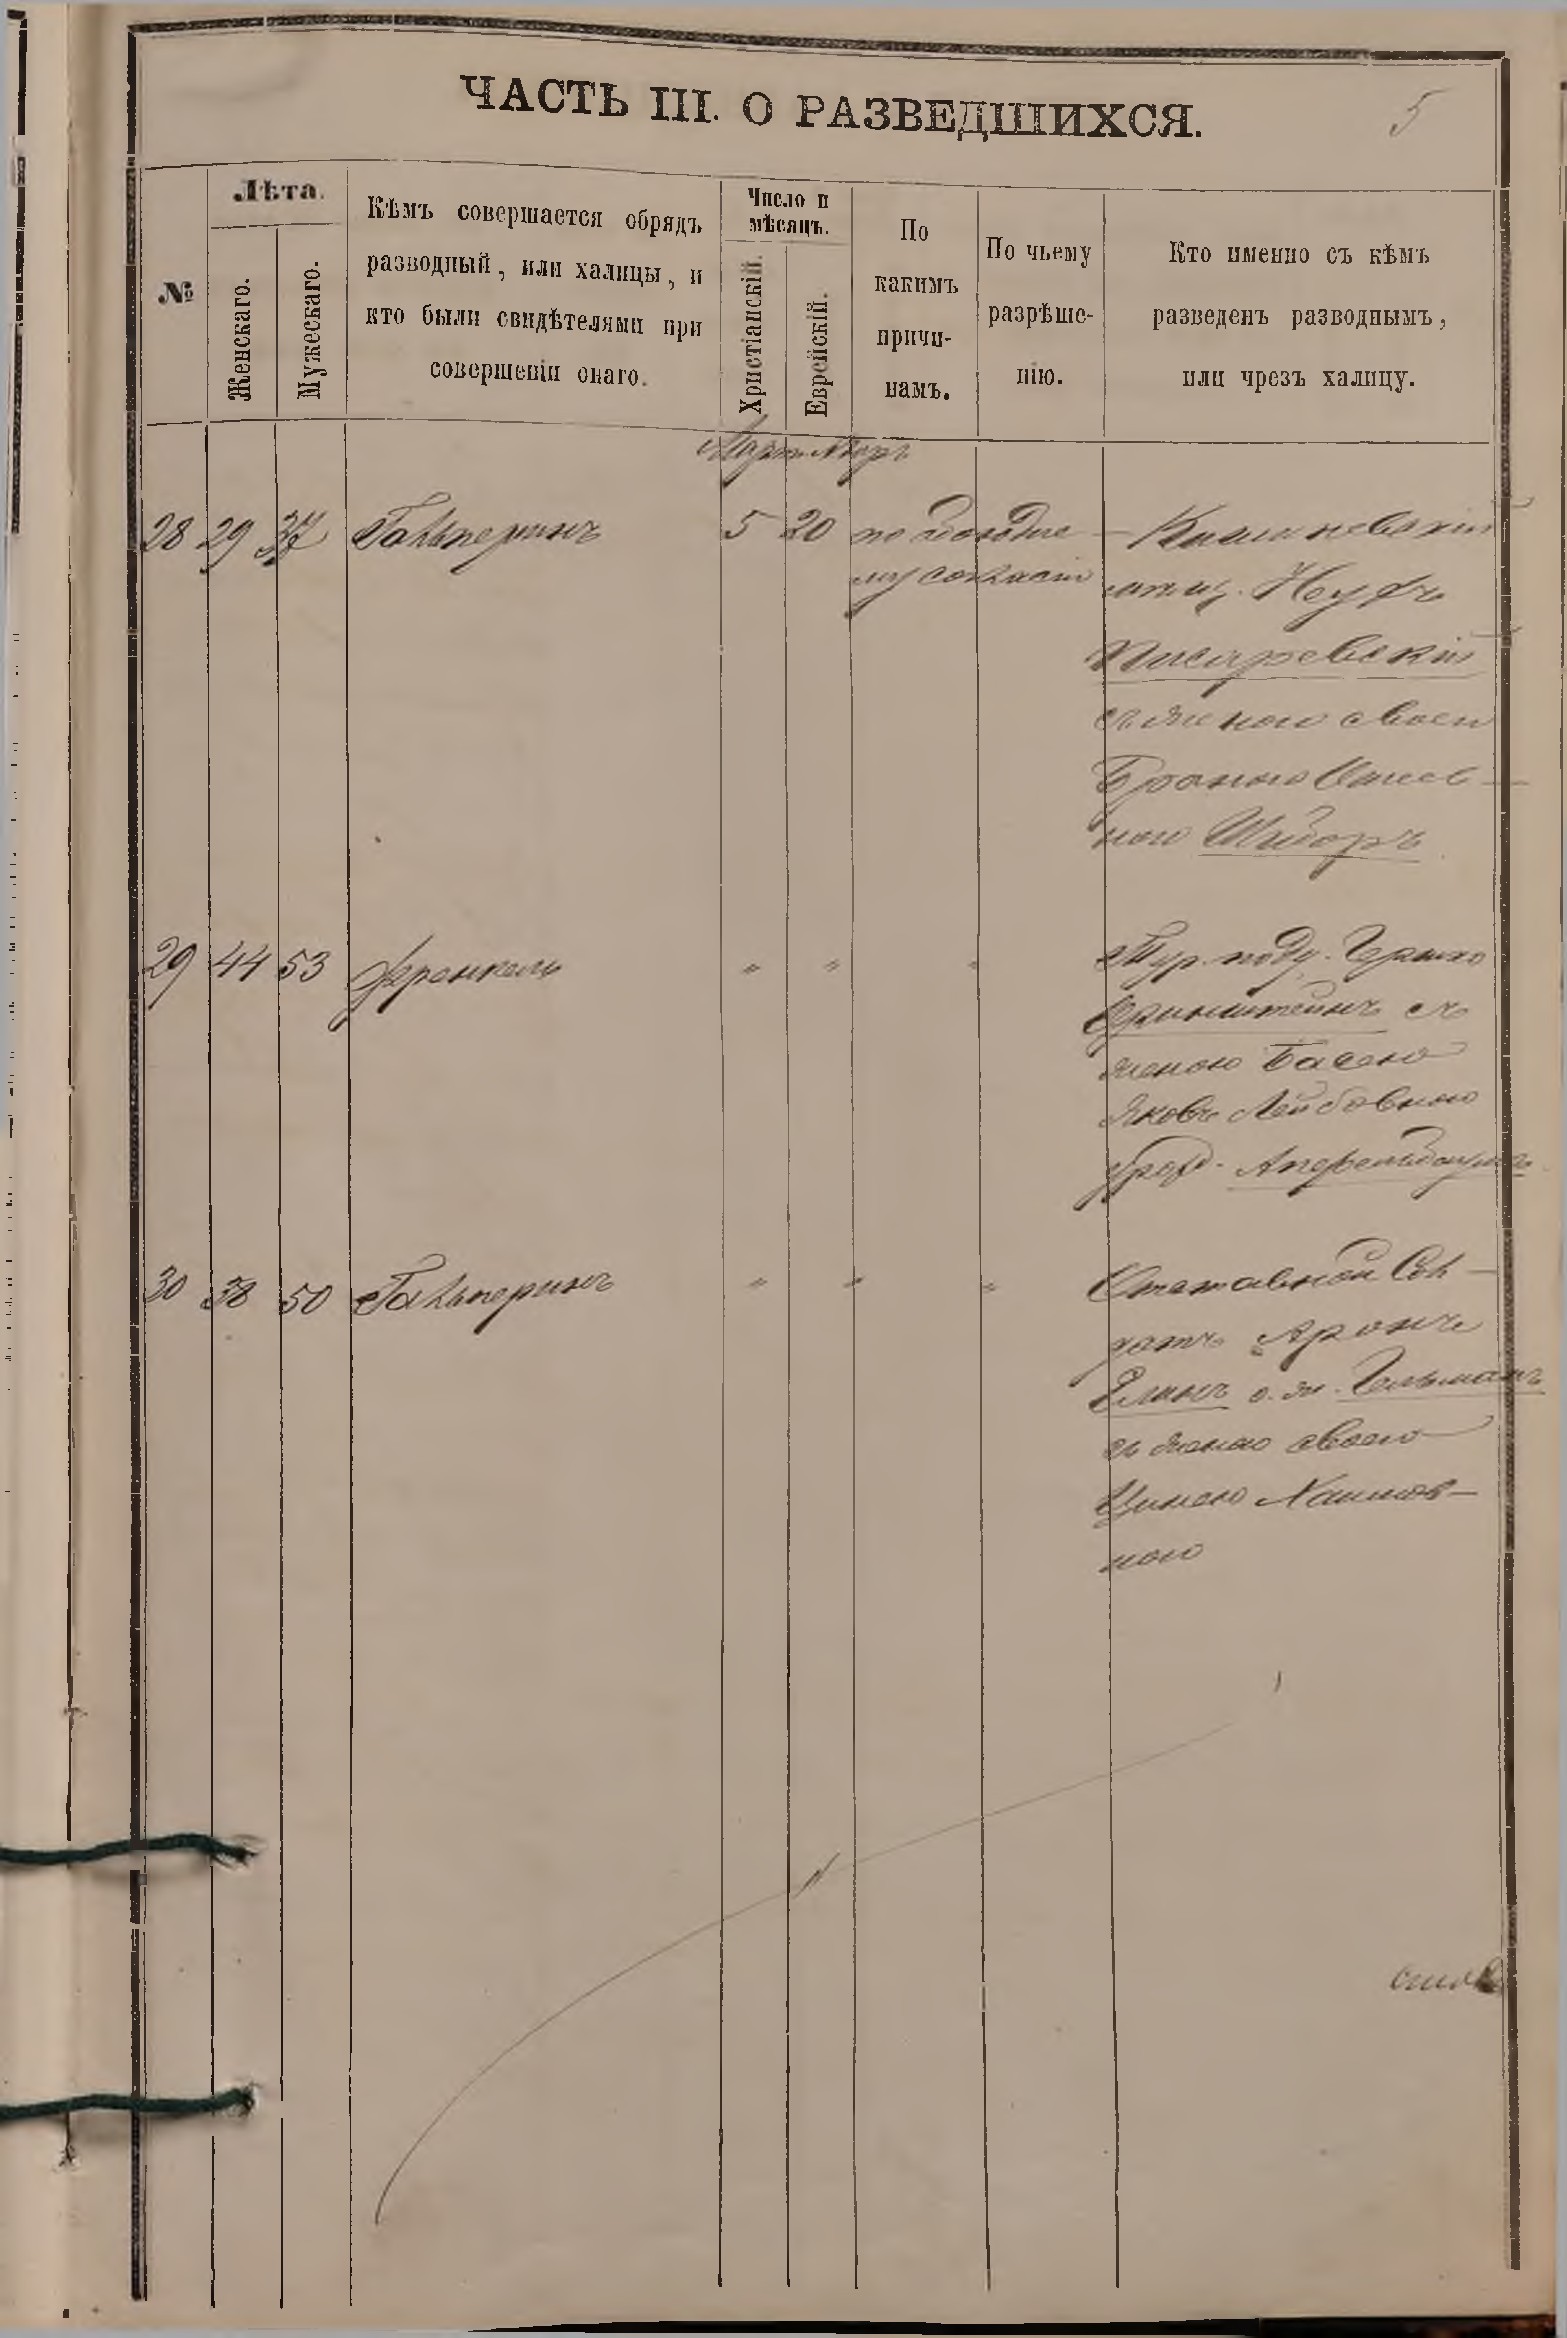 ЧАСТЬ III. О РАЗВЕДШИХСЯ.
5
№
Лѣта.
Женскаго.
Мужескаго.
Кѣмъ совершается обрядъ
разводный, или халицы, и
кто были свидѣтелями при
совершеніи онаго.
Число и
мѣсяцъ.
Христіанскій.
Еврейскій.
По
какимъ
причи-
намъ.
По чьему
разрѣше-
нію.
Кто именно съ кѣмъ
разведенъ разводнымъ,
или чрезъ халицу.
Мартъ Адаръ
28 29 37 Гальперинъ 5 20 по обоюдно
му согласію
Кишиневскій
мѣщ.
Писаревскій
съ женою своею
ною
29 44 53 Френкель " " "
Тур. подд. Гершко
Бринштейнъ съ
женою Басею
Лейбовною
урожд.
30 38 50 Гальперинъ " " "
Отставной Сол-
датъ Аронъ
Елинъ о. ж. Гельманъ
съ женою своею
Хаимов-
ною